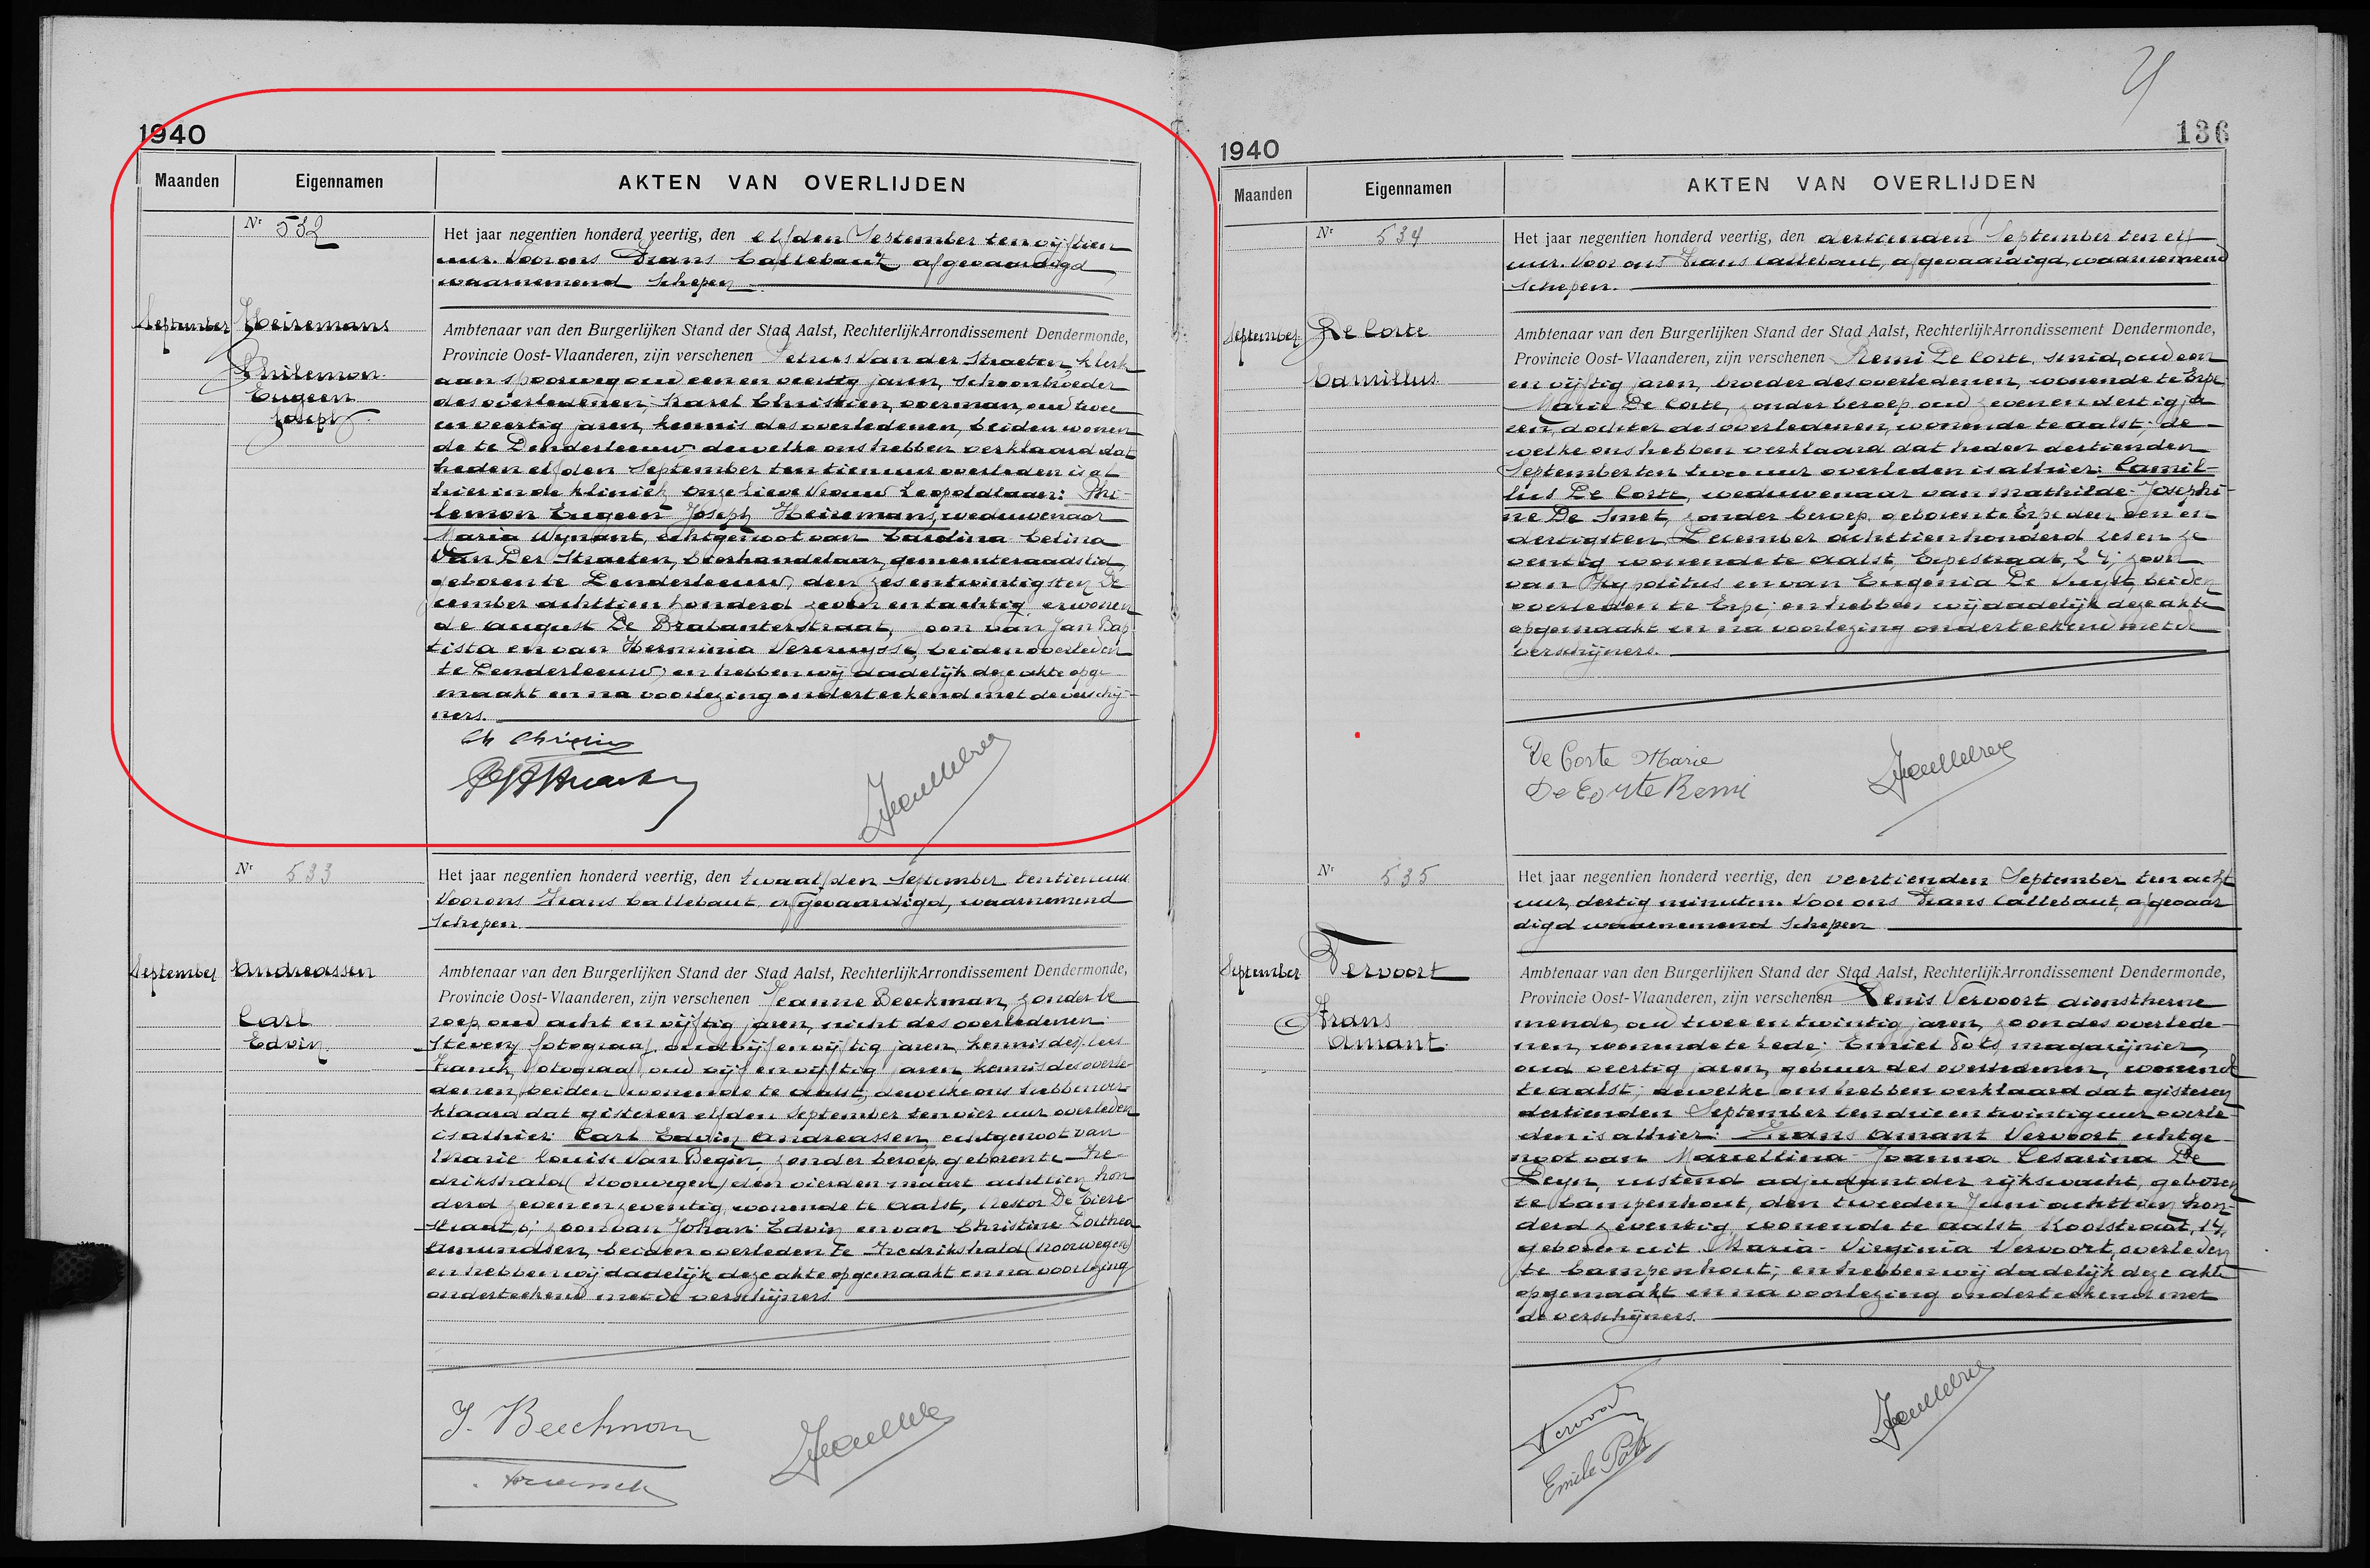 1940
Maanden
Eigennamen
AKTEN VAN OVERLIJDEN
Nr 532
Het jaar negentien honderd veertig, den elfden September ten vijftien
uur. Voor ons Frans Callebaut, afgevaardigd
waarnemend Schepen
September
Heiremans
Philemon
Eugeen
Joseph
Ambtenaar van den Burgerlijken Stand der Stad Aalst, Rechterlijk Arrondissement Dendermonde,
Provincie Oost-Vlaanderen, zijn verschenen Petrus Van der Straeten, klerk
aan spoorweg oud een en veertig jaren, schoonbroeder
des overledenen; Karel Christien, voerman, oud twee
en veertig jaren, kennis des overledenen, beiden wonen
de te Denderleeuw, dewelke ons hebben verklaard dat
heden elfden September ten tien uur overleden is al
hier in de kliniek Onze Lieve Vrouw Leopoldlaan: Phi-
lemon Eugeen Joseph Heiremans, weduwenaar
Maria Wynant, echtgenoot van Carolina Celina
Van Der Straeten, bierhandelaar, gemeenteraadslid,
geboren te Denderleeuw, den zes en twintigsten De
cember achttien honderd zeven en tachtig, er wonen
de August De Brabanterstraat, zoon van Jan Bap
tista en van Herminia Vercruysse, beiden overleden
te Denderleeuw, en hebben wij dadelijk deze akte opge
maakt en na voorlezing onderteekend met de verschij-
ners.
Ch Christien
Nr 533
Het jaar negentien honderd veertig, den twaalfden September ten tien uur
Voor ons Frans Callebaut, afgevaardigd, waarnemend
Schepen.
September
Andreassen
Carl
Edvin
Ambtenaar van den Burgerlijken Stand der Stad Aalst, Rechterlijk Arrondissement Dendermonde,
Provincie Oost-Vlaanderen, zijn verschenen Jeanne Beeckman, zonder be
roep, oud acht en vijftig jaren, nicht des overledenen
fotograaf, oud vijf en vijftig jaren, kennis des
Franck, fotograaf, oud vijf en vijftig jaren, kennis des overle
denen, beiden wonende te Aalst, dewelke ons hebben ver
klaard dat gisteren elfden September ten vier uur overleden
is alhier: Carl Edvin Andreassen, echtgenoot van
Marie Louise Van Begin, zonder beroep, geboren te Fre
drikshald (Noorwegen) den vierden maart achttien hon
derd zeven en zeventig, wonende te Aalst, Nestor De Tiere
straat, zoon van Johan Edvin en van Christine Dorthea
Amundsen, beiden overleden te Fredrikshald (Noorwegen)
en hebben wij dadelijk deze akte opgemaakt en na voorlezing
onderteekend met de verschijners
J. Beeckman
136
1940
Maanden
Eigennamen
AKTEN VAN OVERLIJDEN
Nr 534
Het jaar negentien honderd veertig, den dertienden September ten elf
uur. Voor ons Frans Callebaut, afgevaardigd, waarnemend
Schepen.
September
De Corte
Camillus
Ambtenaar van den Burgerlijken Stand der Stad Aalst, Rechterlijk Arrondissement Dendermonde,
Provincie Oost-Vlaanderen, zijn verschenen Remi De Corte, smid, oud een
en vijftig jaren, broeder des overledenen, wonende te Erpe
Marie De Corte, zonder beroep, oud zeven en dertig ja
ren, dochter des overledenen, wonende te Aalst; de
welke ons hebben verklaard dat heden dertienden
September ten twee uur overleden is alhier: Camil-
lus De Corte, weduwenaar van Mathilde-Josephi-
ne De Smet, zonder beroep, geboren te Erpe den een en
dertigsten December achttien honderd zes en ze
ventig wonende te Aalst, Erpestraat, 24; zoon
van Hypolitus en van Eugenia De Vuyst, beiden
overleden te Erpe; en hebben wij dadelijk deze akte
opgemaakt en na voorlezing onderteekend met de
verschijners.
De Corte Marie
De Corte Remi
Nr 535
Het jaar negentien honderd veertig, den veertienden September ten acht
uur, dertig minuten. Voor ons Frans Callebaut, afgevaar
digd waarnemend Schepen
September
Vervoort
Frans
Amant.
Ambtenaar van den Burgerlijken Stand der Stad Aalst, Rechterlijk Arrondissement Dendermonde,
Provincie Oost-Vlaanderen, zijn verschenen Denis Vervoort, dienstherne
mende, oud twee en twintig jaren, zoon des overlede-
nen, wonende te Lede; Emiel Pots, magazijnier,
oud veertig jaren, gebuur des overledenen, wonende
te Aalst; dewelke ons hebben verklaard dat gisteren
dertienden September ten drie en twintig uur overle-
den is alhier: Frans Amant Vervoort echtge-
noot van Marcellina-Joanna Cesarina De
Reyn, rustend adjudant der rijkswacht, geboren
te Campenhout, den tweeden Juni achttien hon-
derd zeventig, wonende te Aalst Koolstraat, 14,
geboren uit Maria-Virginia Vervoort, overleden
te Campenhout; en hebben wij dadelijk deze akte
opgemaakt en na voorlezing onderteekend met
de verschijners.
Vervoort
Emile Pots